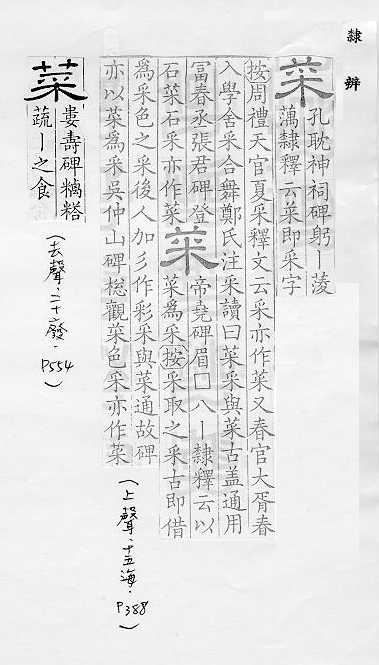 隸辨
菜
孔耽神祠碑躬丨菱
藕隸釋云菜即采字
按周禮天官夏采釋文云采亦作菜又春官大胥春
入學舍采合舞鄭氏注采讀曰菜采與菜古盖通用
富春丞張君碑登
石菜石采亦作菜
菜
帝堯碑眉囗八丨隸釋云以
菜爲采按采取之采古即借
爲采色之采後人加彡作彩采與菜通故碑
亦以菜爲采吳仲山碑揔觀菜色采亦作菜
(上聲.十五海.
P388)
菜
婁壽碑糲荅
蔬丨之食
(去聲.二十廢.
P554)